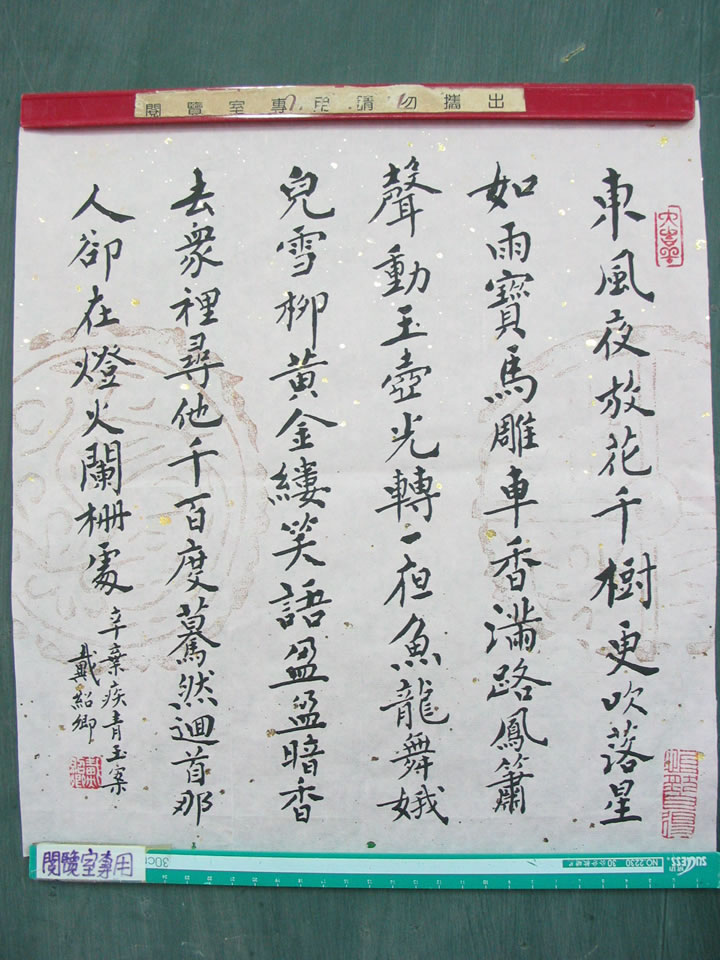 閱覽室專用 請勿攜出
東風夜放花千樹更吹落星
如雨寶馬雕車香滿路鳳簫
聲動玉壺光轉一夜魚龍舞娥
兒雪柳黃金縷笑語盈盈暗香
去眾裡尋他千百度驀然迴首那
人卻在燈火闌柵處
辛棄疾青玉案
戴紹卿
閱覽室專用
30cm
NO.2230
SUCCESS